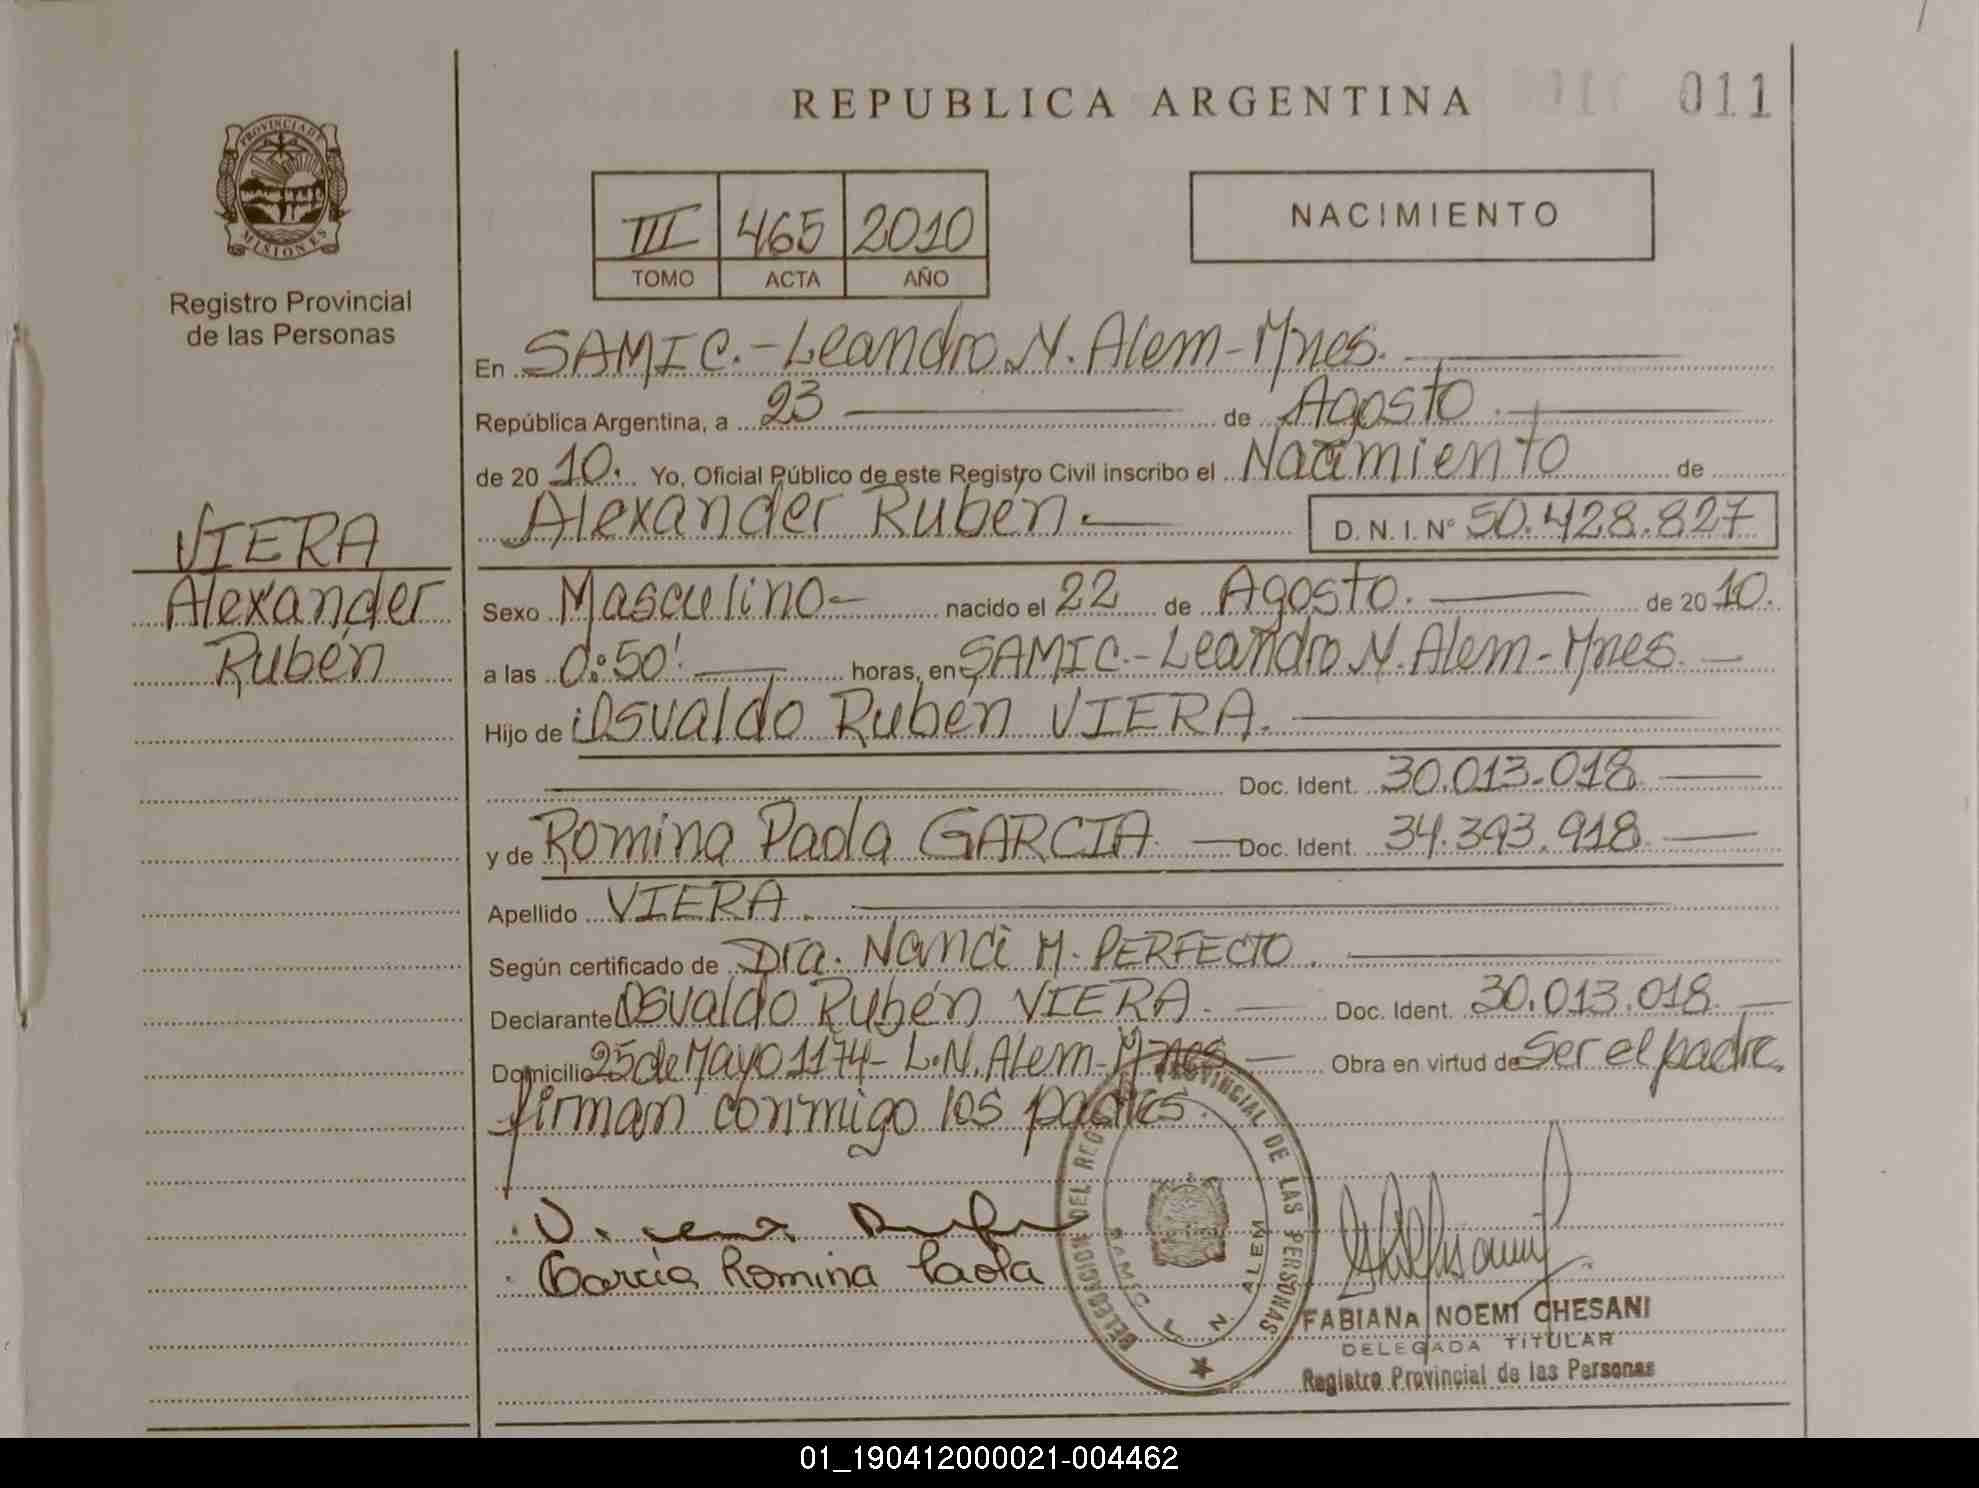 REPUBLICA ARGENTINA
011
PROVINCIA DE
MISIONES
Registro Provincial
de las Personas
III 465 2010
TOMO ACTA AÑO
NACIMIENTO
En SAMIC.-Leandro N. Alem-Mnes.
República Argentina, a 23 de Agosto.
de 20 10. Yo, Oficial Público de este Registro Civil inscribo el Nacimiento de
Alexander Rubén.
D. N. I. Nº 50.428.827
VIERA
Alexander
Rubén
Sexo Masculino- nacido el 22 de Agosto. de 20 10.
a las 0:50' horas, en SAMIC.-Leandro N. Alem-Mnes.
Hijo de Osvaldo Rubén VIERA.
Doc. Ident. 30.013.018
y de Romina Paola GARCIA. Doc. Ident. 34.393.918
Apellido VIERA.
Según certificado de Dra. Nanci M. PERFECTO.
Declarante Osvaldo Rubén VIERA. Doc. Ident. 30.013.018
Domicilio 25 de Mayo 1174- L.N. Alem-Mnes Obra en virtud de Ser el padre.
firman conmigo los padres.
Garcia Romina Paola
DELEGACION DEL REG PROVINCIAL DE LAS PERSONAS
SAMIC L N ALEM
FABIANA NOEMI CHESANI
DELEGADA TITULAR
Registro Provincial de las Personas
01_190412000021-004462